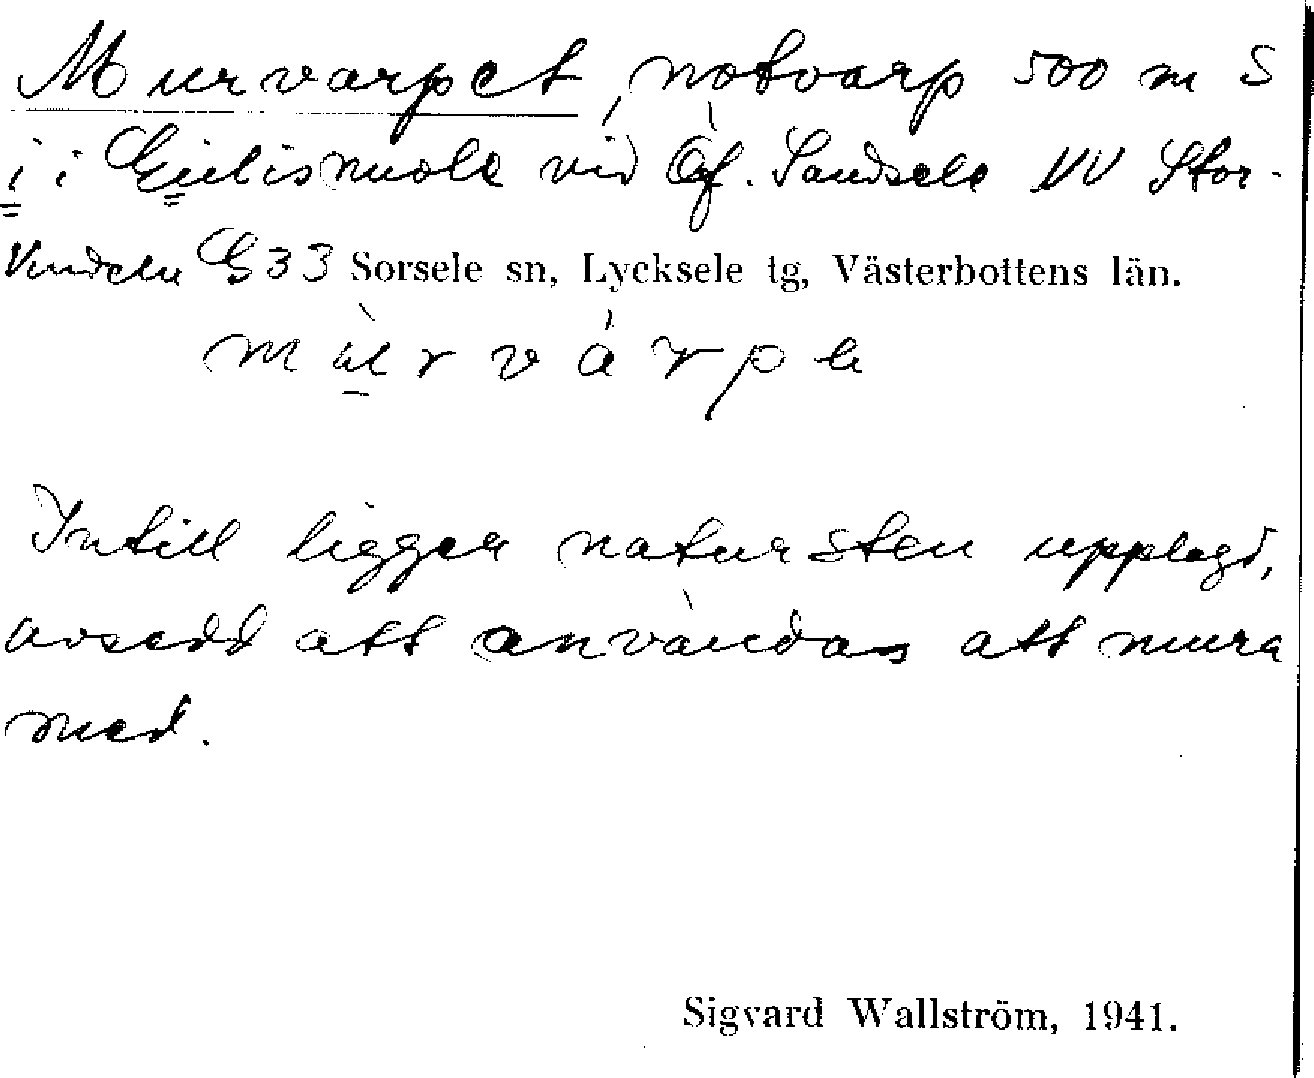 Murvarpet, notvarp 500 m S
i i Giulisnuole vid Öf. Sandsele NV Stor-
Vindeln G 33 Sorsele sn, Lycksele tg, Västerbottens län.
Intill ligger natursten upplagd,
avsedd att användas att mura
med.
Sigvard Wallström, 1941.